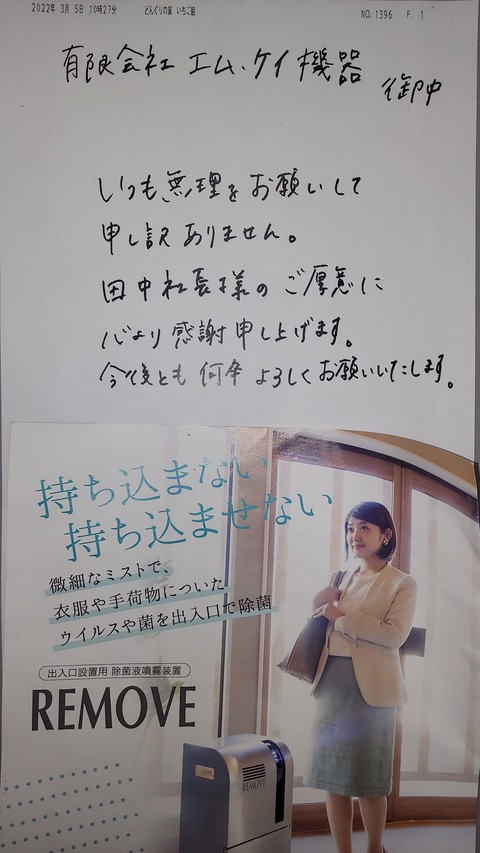 2022年 3月 5日 10時27分 どんぐりの家 いちご組 NO. 1396 P. 1
有限会社 エム・ケイ機器 御中
いつも無理をお願いして
申し訳ありません。
田中社長様のご厚意に
心より感謝申し上げます。
今後とも何卒よろしくお願いいたします。
持ち込まない
持ち込ませない
微細なミストで、
衣服や手荷物についた
ウイルスや菌を出入口で除菌
出入口設置用 除菌液噴霧装置
REMOVE
REMOVE